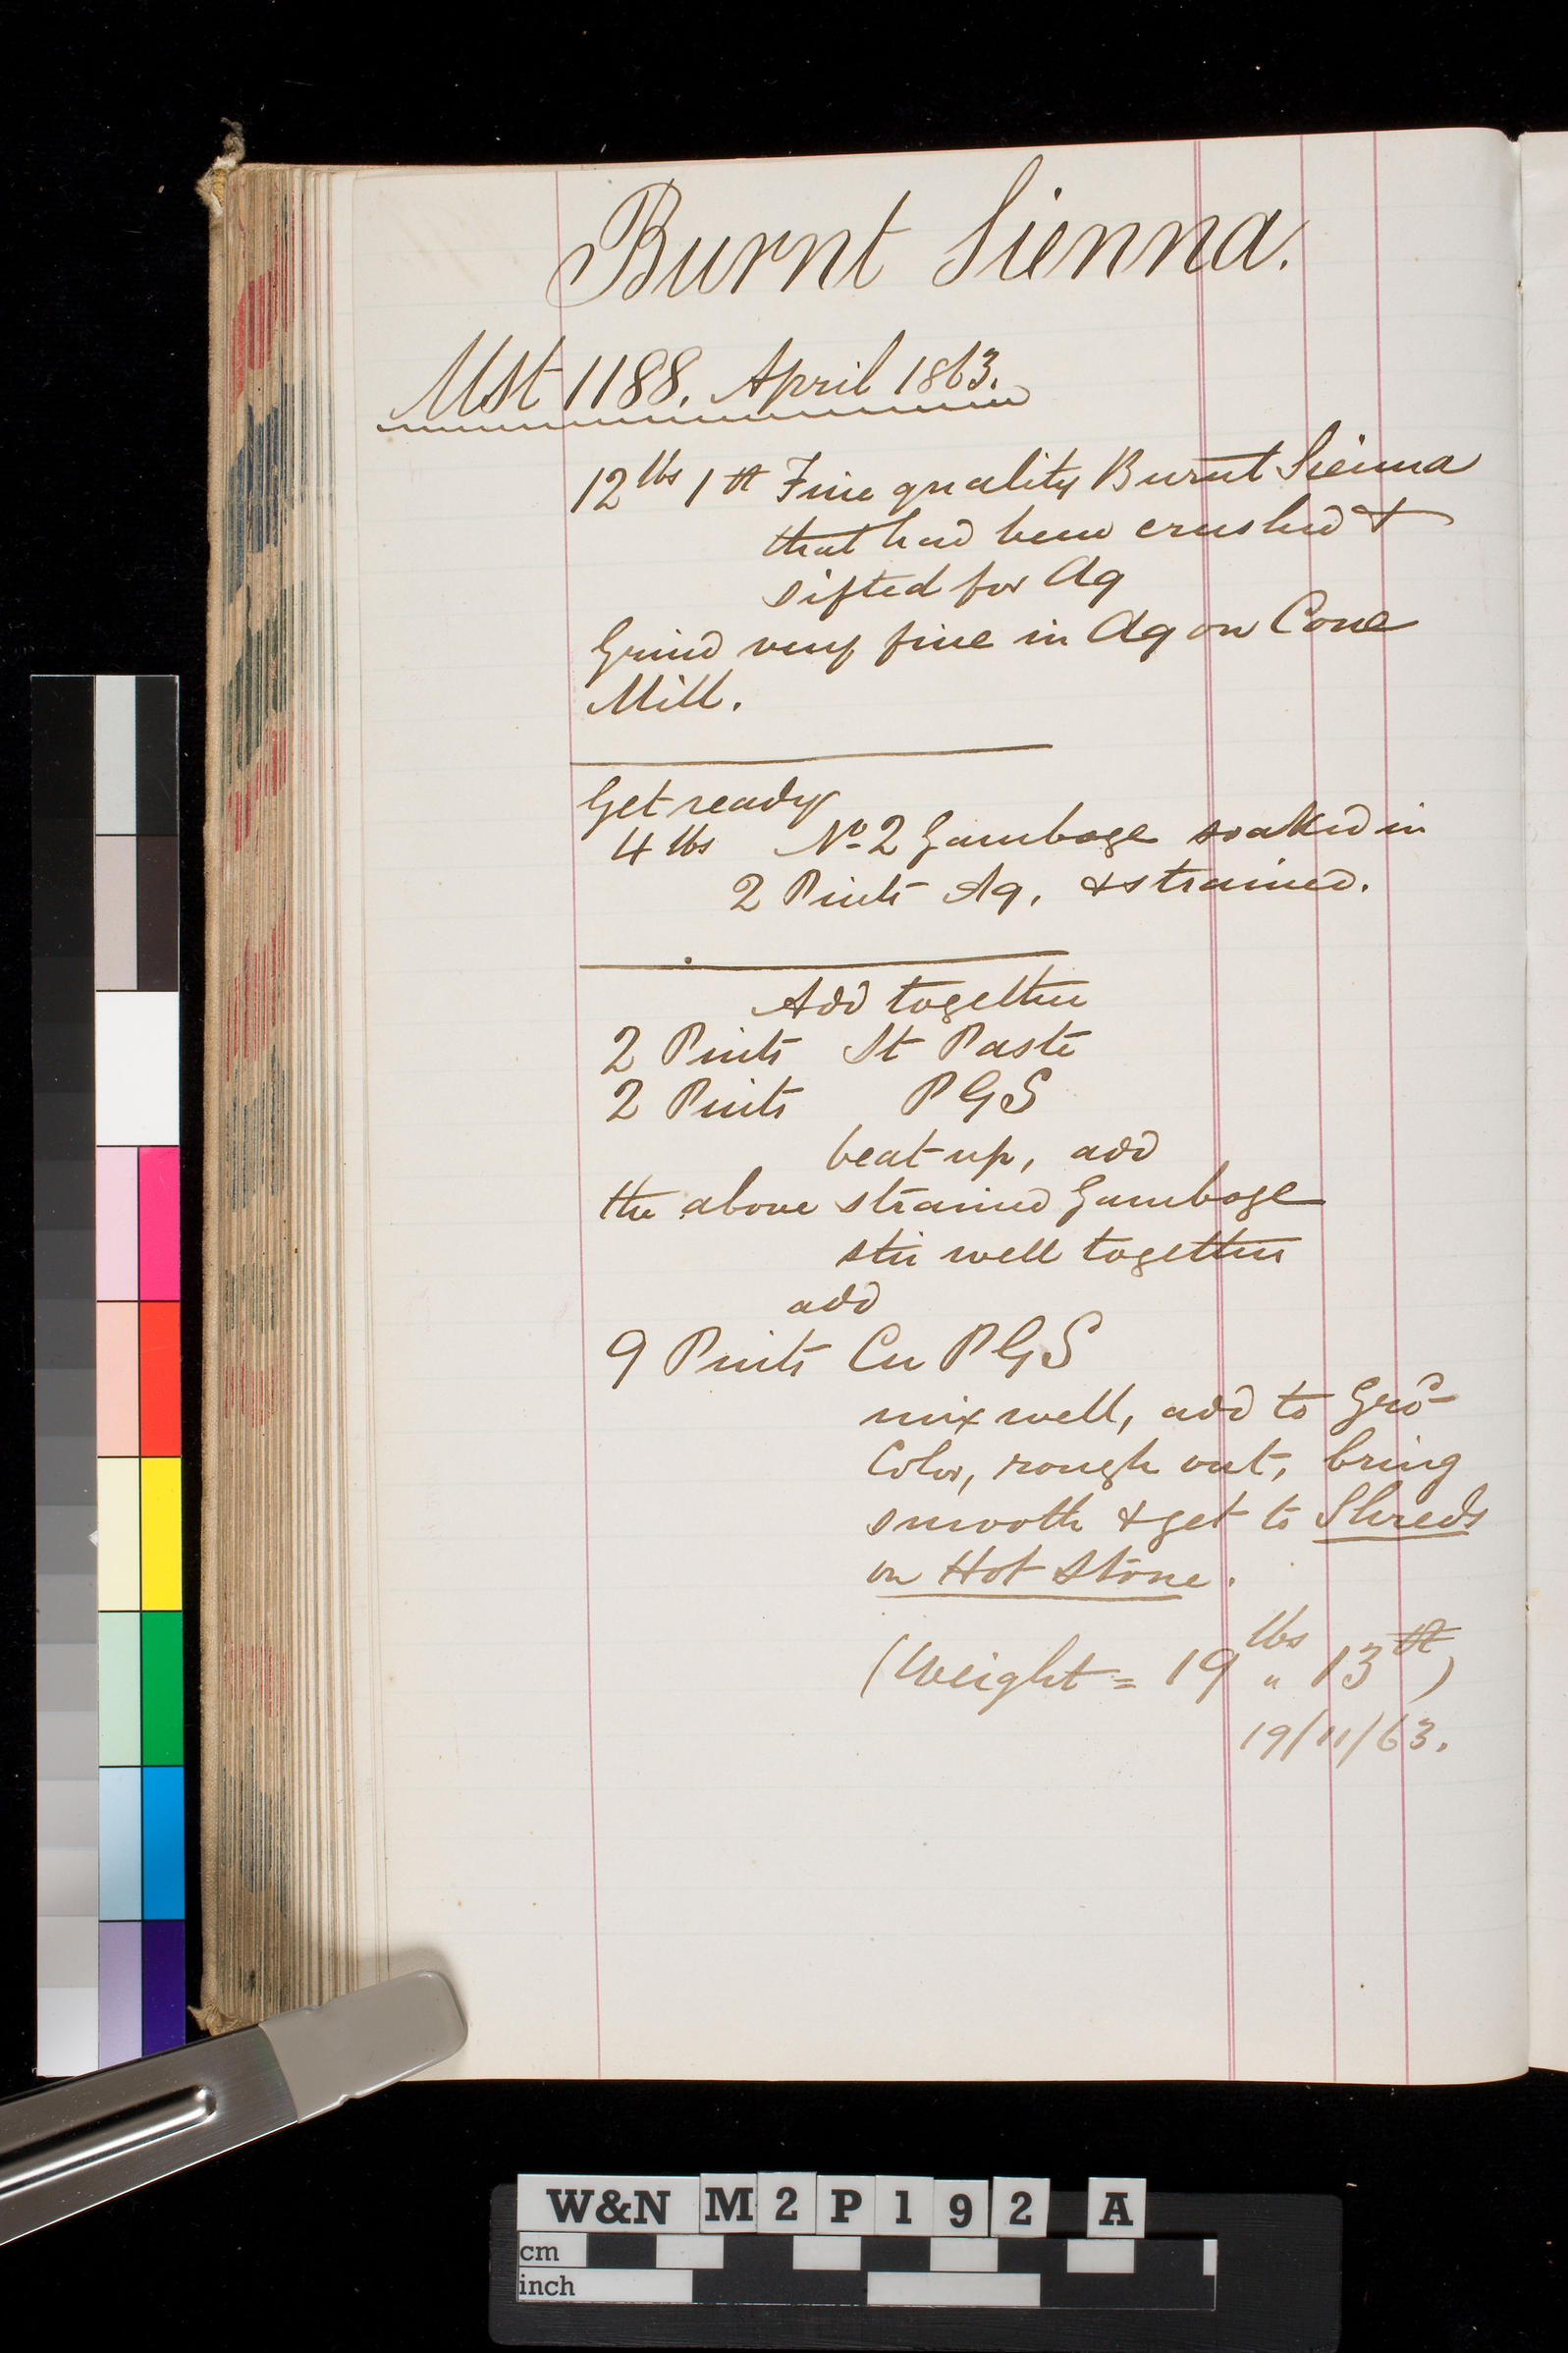 Burnt Sienna.
Mst 1188. April 1863.
12 lbs 1 lb Fine quality Burnt Sienna
that had been crushed &
sifted for Aq
Grind very fine in Aq on Cone
Mill.
Get ready
4 lbs No 2 Gamboge soaked in
2 Pints Aq, & strained.
Add together
2 Pints St Paste
2 Pints PGS
beat up, add
the above strained Gamboge
stir well together
add
9 Pints Cu PGS
mix well, add to Grd
Color, rough out, bring
smooth & get to Shreds
on Hot Stone.
(Weight = 19 lbs " 13 )
19/11/63.
W&N M2P192 A
cm
inch